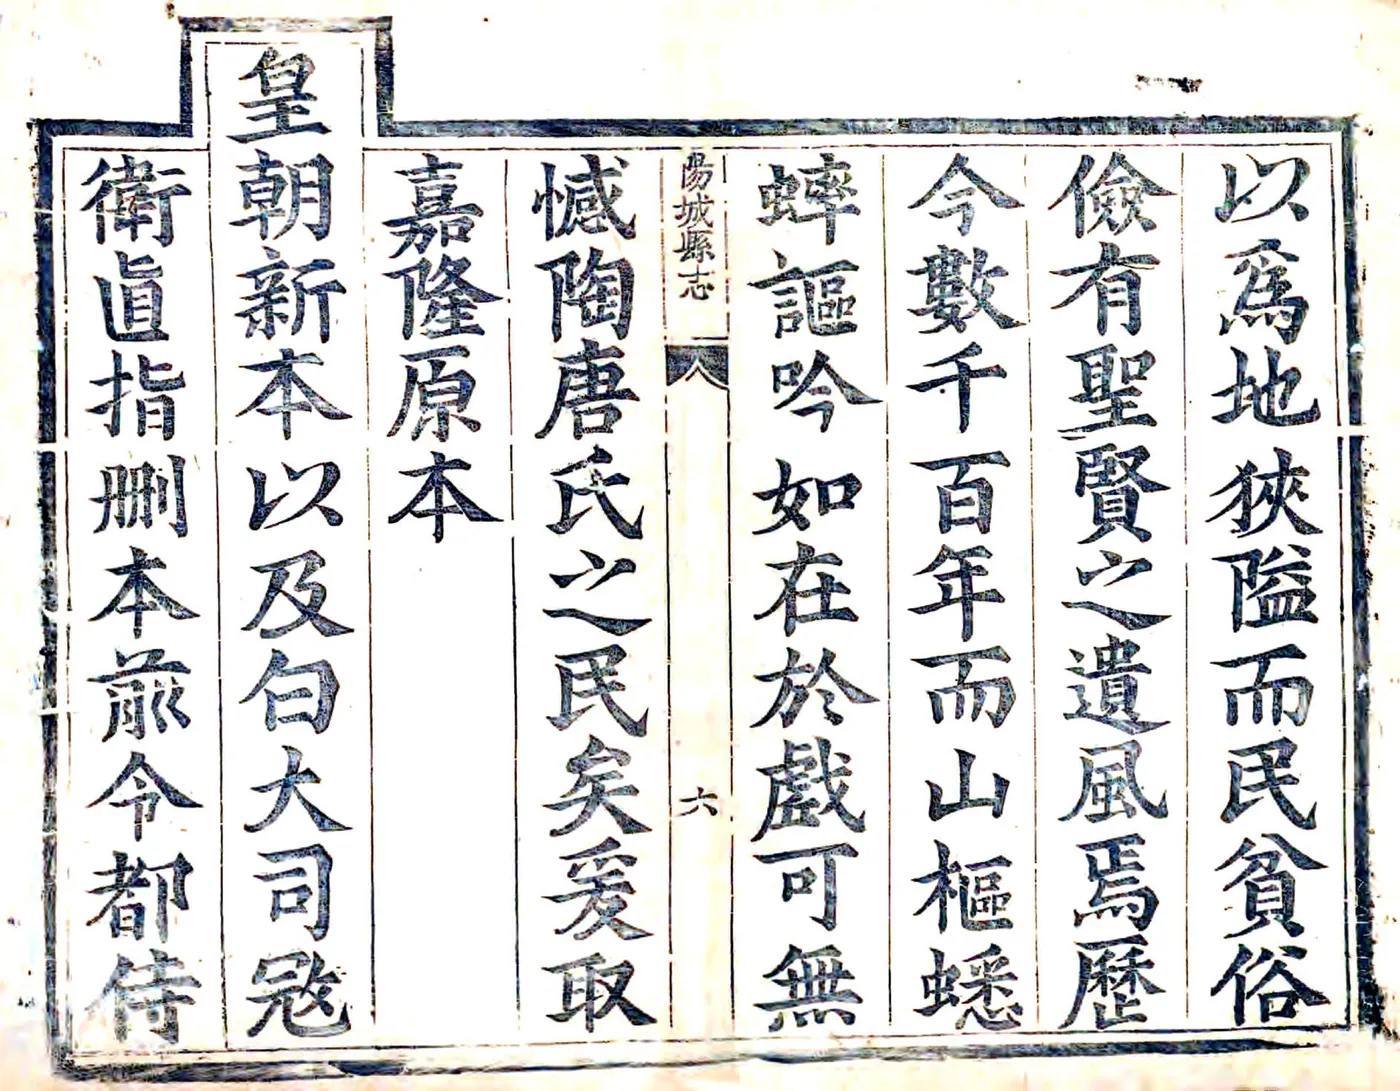 以為地狹隘而民貧俗
儉有聖賢之遺風焉歷
今數千百年而山樞蟋
蟀謳吟如在於戲可無
陽城縣志
六
憾陶唐氏之民矣爰取
嘉隆原本
皇朝新本以及白大司寇
衛眞指刪本前令都侍